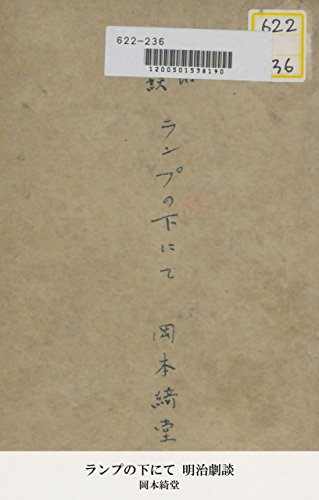 622-236
1200501538190
622
36
談
ランプの下にて
岡本綺堂
ランプの下にて 明治劇談
岡本綺堂